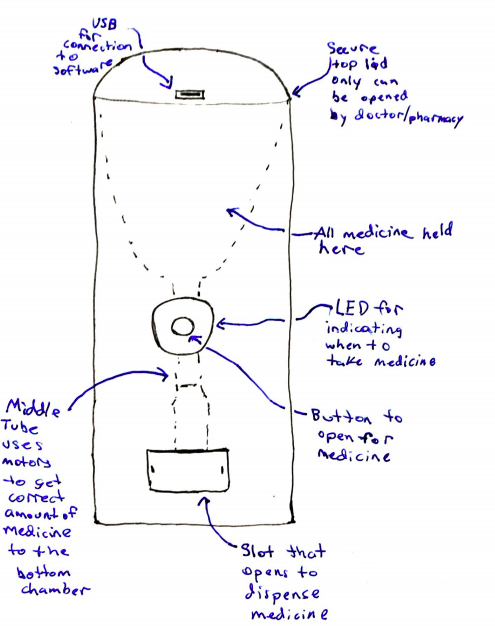 USB
for
connection
to
software
Secure
top lid
only can
be opened
by doctor/pharmacy
All medicine held
here
LED for
indicating
when to
take medicine
Button to
open for
medicine
Middle
Tube
uses
motors
to get
correct
amount of
medicine
to the
bottom
chamber
Slot that
opens to
dispense
medicine